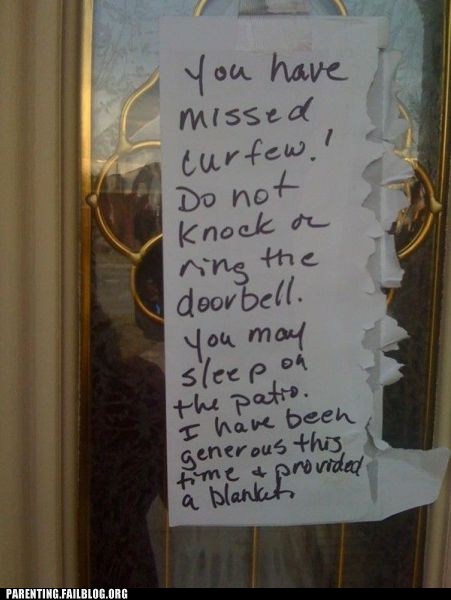 You have
missed
curfew.!
Do not
Knock or
ring the
doorbell.
You may
sleep on
the patio.
I have been
generous this
time & provided
a blanket.
PARENTING.FAILBLOG.ORG